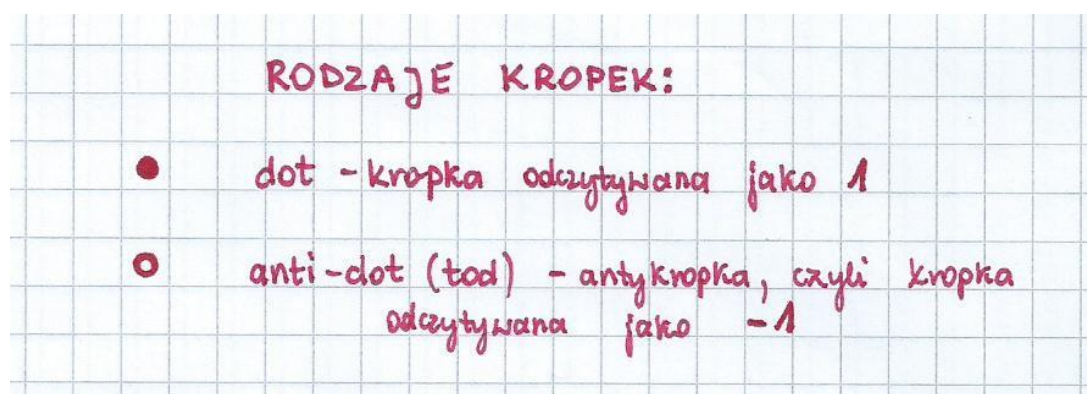 RODZAJE KROPEK:
dot - kropka odczytywana jako 1
anti-dot (tod) - antykropka, czyli kropka
odczytywana jako -1